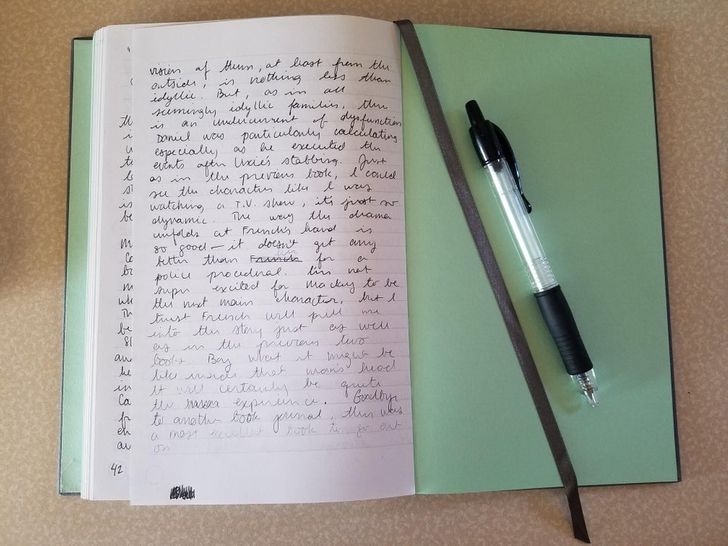 vision of them, at least from the
outside, is nothing less than
idyllic. But, as in all
seemingly idyllic families, there
is an undercurrent of dysfunction
Daniel was particularly calculating
especially as he executed the
events after Lexie's stabbing. Just
as in the previous book, I could
see the characters like I was
watching a T.V. show, it's just so
dynamic. The way the drama
unfolds at French's hand is
so good — it doesn't get any
better than for a
police procedural. I'm not
super excited for Mackey to be
the next main character, but I
trust French will pull me
into the story just as well
as in the previous two
books. Boy what it might be
like inside that man's head
It will certainly be quite
the experience. Goodbye
to another book journal, this was
a most excellent book to go out
on
42